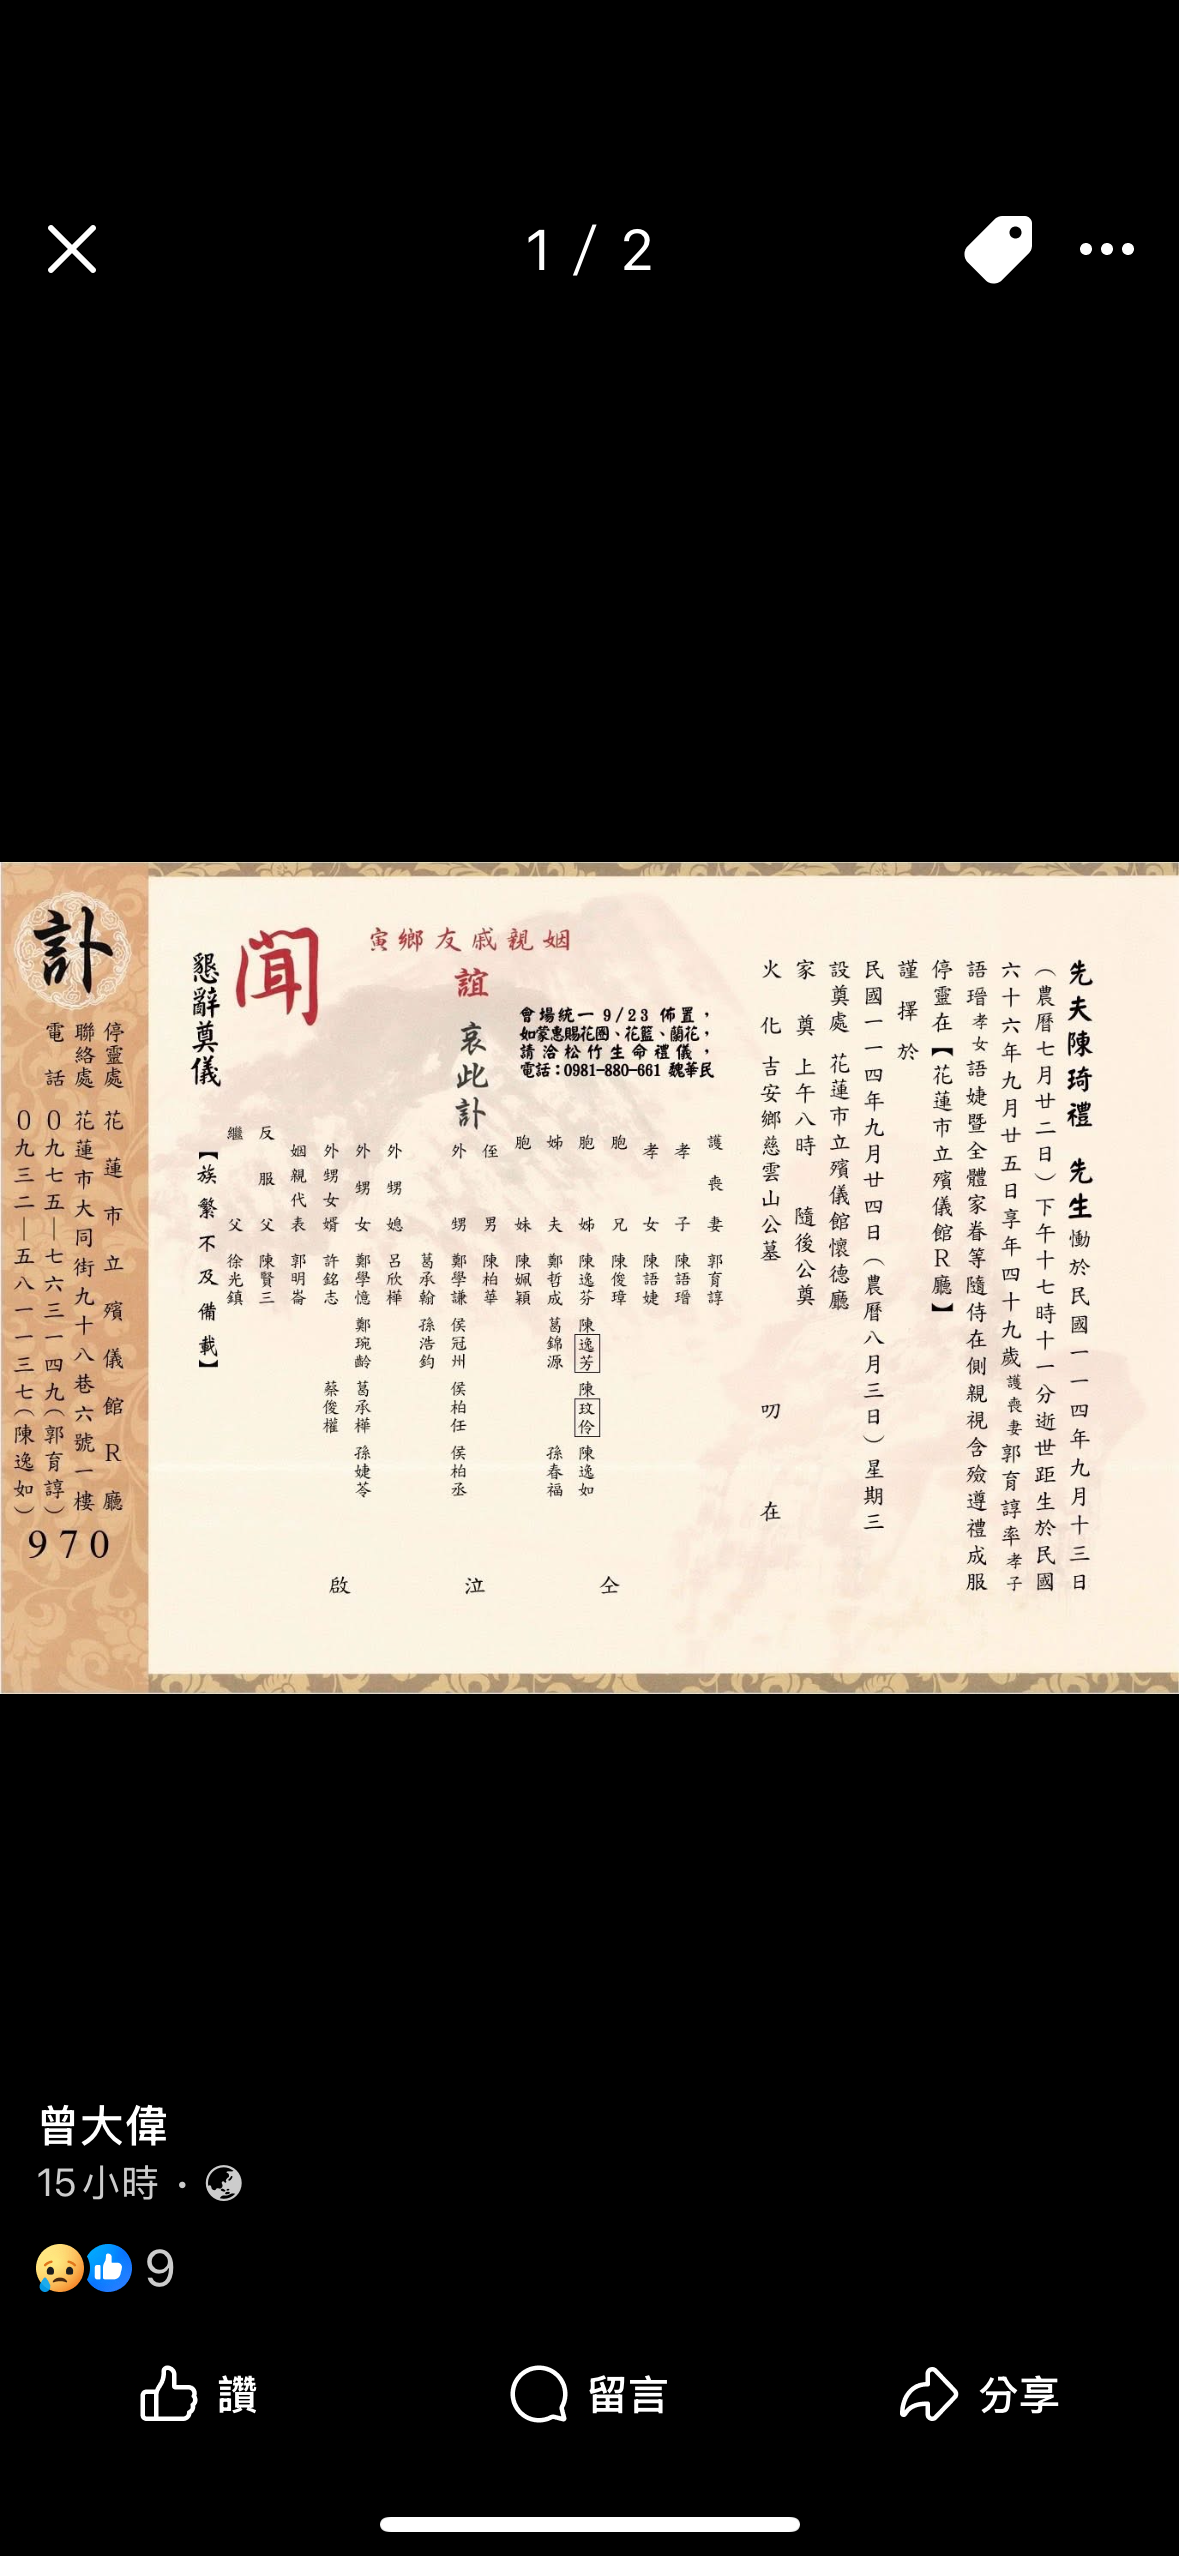 1 / 2
先夫陳琦禮 先生慟於民國一一四年九月十三日
（農曆七月廿二日）下午十七時十一分逝世距生於民國
六十六年九月廿五日享年四十九歲護喪妻郭育諄率孝子
語瑨孝女語婕暨全體家眷等隨侍在側親視含殮遵禮成服
停靈在【花蓮市立殯儀館R廳】
謹擇於
民國一一四年九月廿四日（農曆八月三日）星期三
設奠處 花蓮市立殯儀館懷德廳
家奠 上午八時 隨後公奠
火化 吉安鄉慈雲山公墓 叨在
姻親戚友鄉寅
誼
哀此訃
聞
會場統一 9/23 佈置，
如蒙惠賜花圈、花籃、蘭花，
請洽松竹生命禮儀，
電話：0981-880-661 魏華民
護喪妻 郭育諄
孝子 陳語瑨
孝女 陳語婕
胞兄 陳俊璋
胞姊 陳逸芬 陳逸芳 陳玟伶 陳逸如
姊夫 鄭哲成 葛錦源 孫春福
胞妹 陳姵穎
侄男 陳柏華
外甥 鄭學謙 侯冠州 侯柏任 侯柏丞
葛承翰 孫浩鈞
外甥媳 呂欣樺
外甥女 鄭學憶 鄭琬齡 葛承樺 孫婕苓
外甥女婿 許銘志 蔡俊權
姻親代表 郭明崙
反服父 陳賢三
繼父 徐光鎮
仝泣啟
懇辭奠儀
【族繁不及備載】
訃
停靈處 花蓮市立殯儀館R廳
聯絡處 花蓮市大同街九十八巷六號一樓
電話 0九七五—七六三一四九（郭育諄）
0九三二—五八一一三七（陳逸如）
970
曾大偉
15小時 ·
9
讚
留言
分享